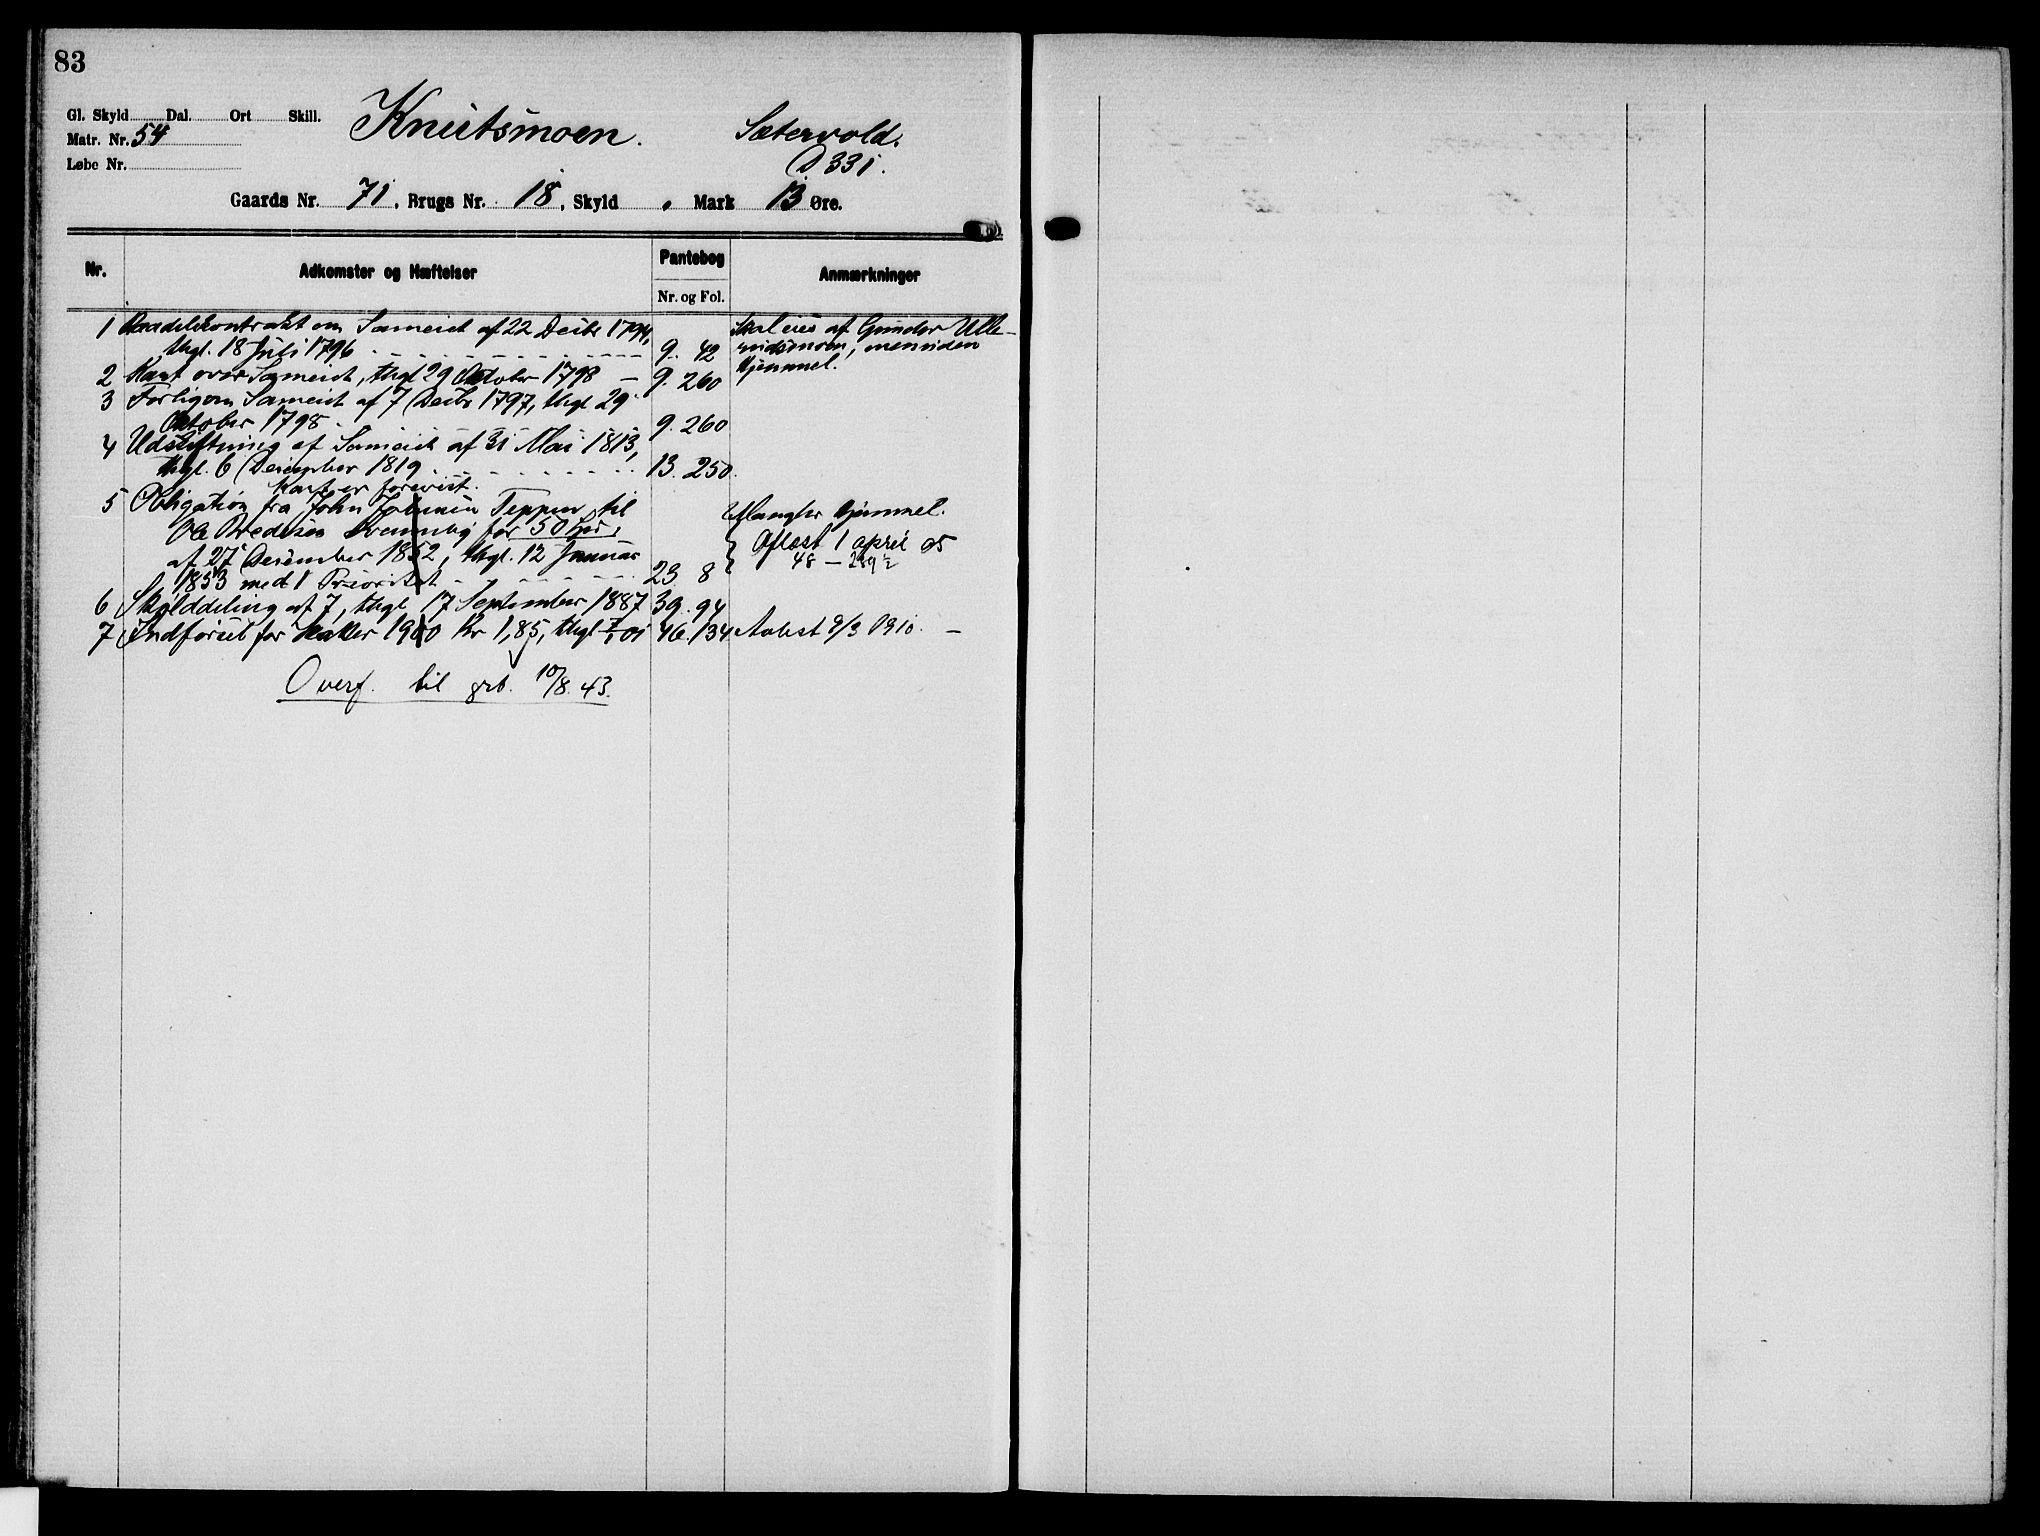 83
Gl. Skyld Dal. Ort Skill.
Matr. Nr. 54
Løbe Nr.
Knutsmoen. Sætervold.
D 331.
Gaards Nr. 71, Brugs Nr. 18, Skyld Mark 13 Øre.
Nr. Adkomster og Hæftelser Pantebog Anmærkninger
Nr. og Fol.
1 Raadelekontrakt om Sameiet af 22 Decbr 1794, Skal eies af Gunder Ulle-
thgl. 18 Juli 1796 9. 42 rudsmoen, men uden
2 Kart over Sameiet, thgl 29 Oktober 1798 — 9. 260 Hjemmel.
3 Forlig om Sameiet af 7 Decbr 1797, thgl 29
Oktober 1798. 9. 260
4 Udskiftning af Sameiet af 31 Mai 1813,
thgl. 6 December 1819 13. 250.
Kart er forevist.
5 Obligation fra John Johnsen Teppen til Mangler Hjemmel.
Ole Bredesen for 50 Spd, Aflæst 1 april 05
af 27 December 1852, thgl. 12 Januar 48 —
1853 med 1 Prioritet 23. 8
6 Skylddeling af 7, thgl 17 September 1887 39. 94
7 Indførsel for Skatter 1900 Kr 1,85, thgl 7/1 01 46. 134 Avlæst 9/3 1910. —
Overf. til grb. 10/8. 43.